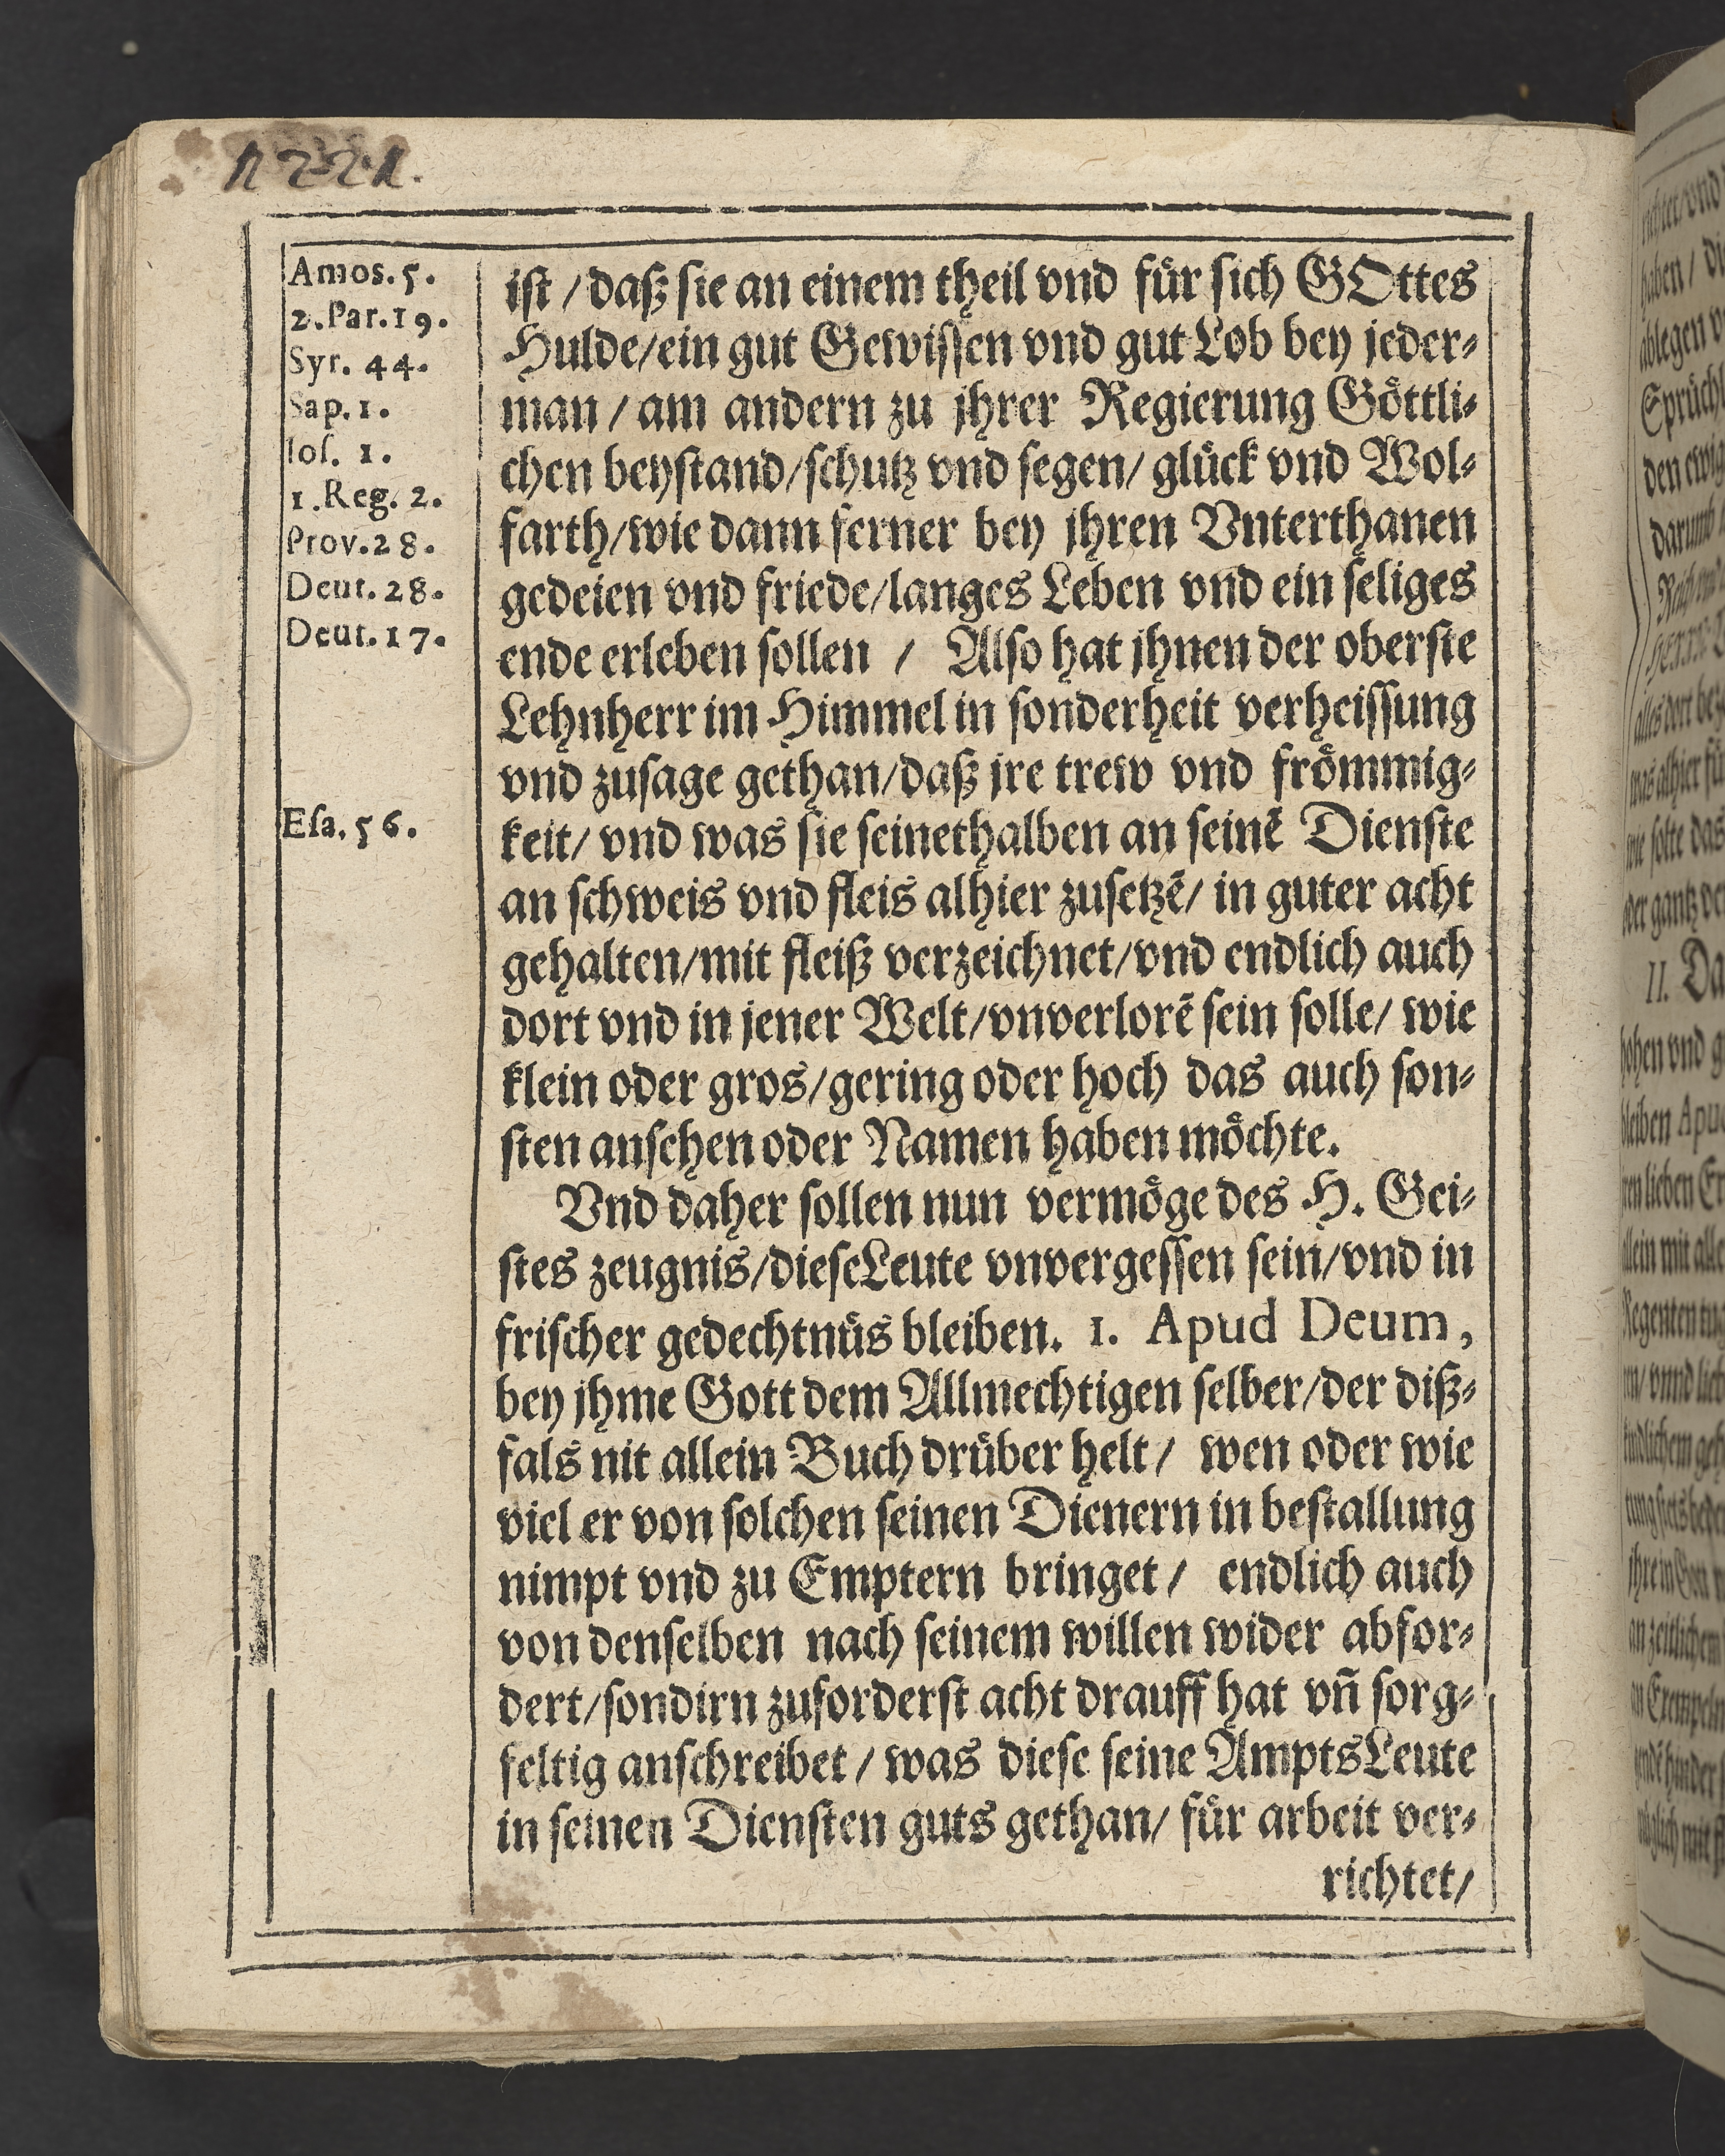 1221.
Amos. 5.
2. Par. 19.
Syr. 44.
Sap. 1.
Ios. 1.
1. Reg. 2.
Prov. 28.
Deut. 28.
Deut. 17.
Esa. 56.
ist / daß sie an einem theil vnd für sich GOttes
Hulde/ein gut Gewissen vnd gut Lob bey jeder-
man / am andern zu jhrer Regierung Göttli-
chen beystand/schutz vnd segen/ glück vnd Wol-
farth/wie dann ferner bey jhren Vnterthanen
gedeien vnd friede/langes Leben vnd ein seliges
ende erleben sollen / Also hat jhnen der oberste
Lehnherr im Himmel in sonderheit verheissung
vnd zusage gethan/daß jre trew vnd frömmig-
keit/ vnd was sie seinethalben an seinē Dienste
an schweis vnd fleis alhier zusetzē/ in guter acht
gehalten/mit fleiß verzeichnet/vnd endlich auch
dort vnd in jener Welt/vnverlorē sein solle/ wie
klein oder gros/gering oder hoch das auch son-
sten ansehen oder Namen haben möchte.
Vnd daher sollen nun vermöge des H. Gei-
stes zeugnis/dieseLeute vnvergessen sein/vnd in
frischer gedechtnüs bleiben. 1. Apud Deum,
bey jhme Gott dem Allmechtigen selber/der diß-
fals nit allein Buch drüber helt/ wen oder wie
viel er von solchen seinen Dienern in bestallung
nimpt vnd zu Emptern bringet/ endlich auch
von denselben nach seinem willen wider abfor-
dert/sondirn zuforderst acht drauff hat vñ sorg-
feltig anschreibet / was diese seine AmptsLeute
in seinen Diensten guts gethan/ für arbeit ver-
richtet/